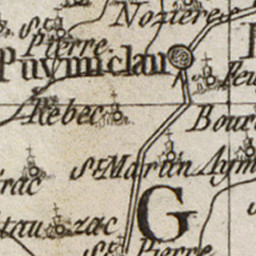 Noziere
St
Pierre
Puymiclan
Rebec
Bour
St Martin Aym
rac
tau zac
G
St Pierre